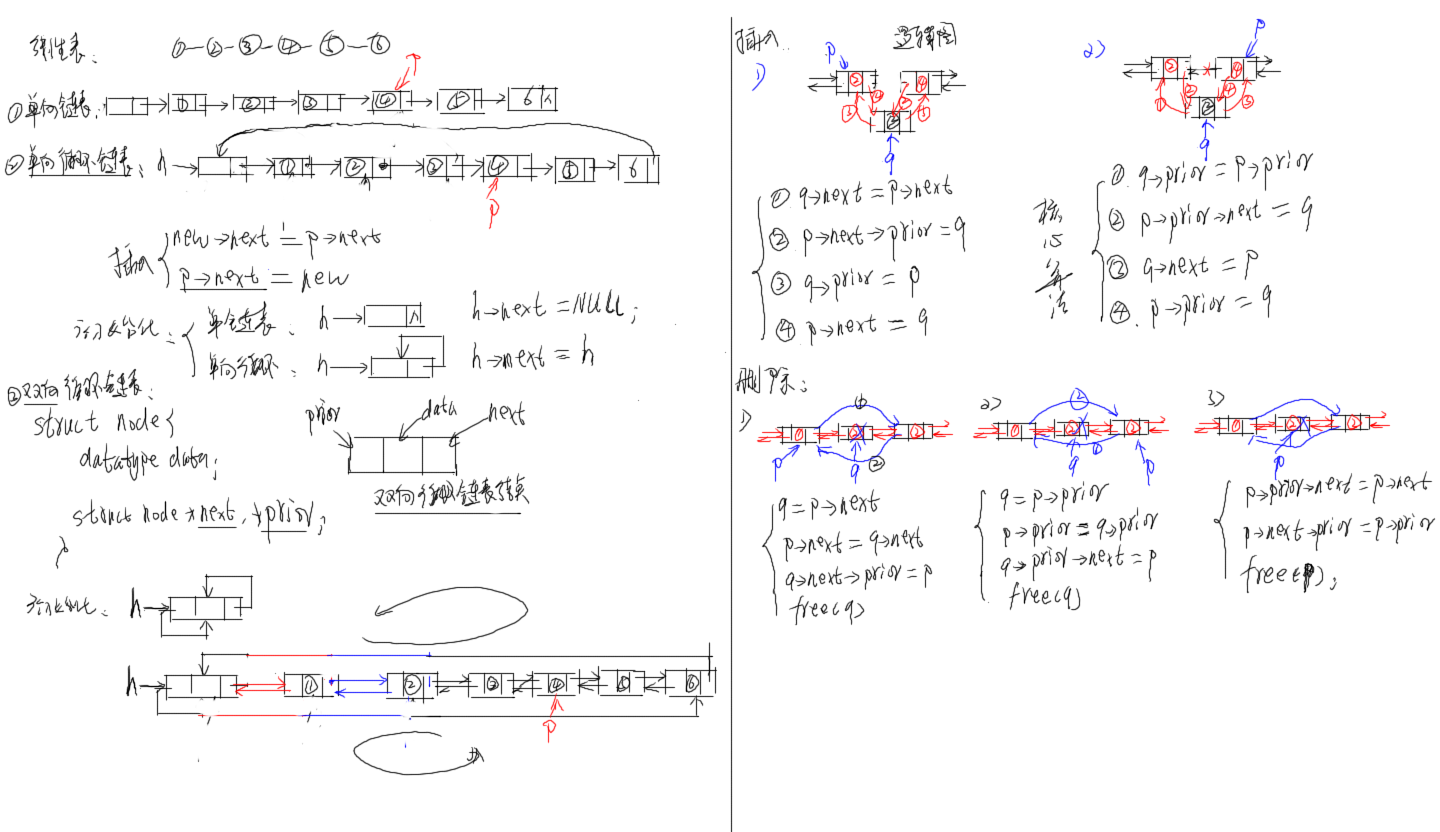 线性表:
①-②-③-④-⑤-⑥
①单向链表:
① ② ③ ④ ⑤ 6 ∧
p
②单向循环链表: h
① ② ③ ④ ⑤ 6
p
插入
new→next = p→next
p→next = new
初始化:
单链表: h ∧ h→next = NULL;
单向循环: h h→next = h
双向循环链表:
struct node{
datatype data;
struct node *next, *prior;
}
prior data next
双向循环链表结点
初始化: h
h ① ② ③ ④ ⑤ ⑥
p
插入 逻辑图
1)
p
② ④
③
q
① q→next = p→next
② p→next→prior = q
③ q→prior = p
④ p→next = q
2)
p
② ④
q
核心算法
① q→prior = p→prior
② p→prior→next = q
③ q→next = p
④ p→prior = q
删除:
1)
① ②
p q
q = p→next
p→next = q→next
q→next→prior = p
free(q)
2)
② ①
q p
q = p→prior
p→prior = q→prior
q→prior→next = p
free(q)
3)
p
p→prior→next = p→next
p→next→prior = p→prior
free(p);